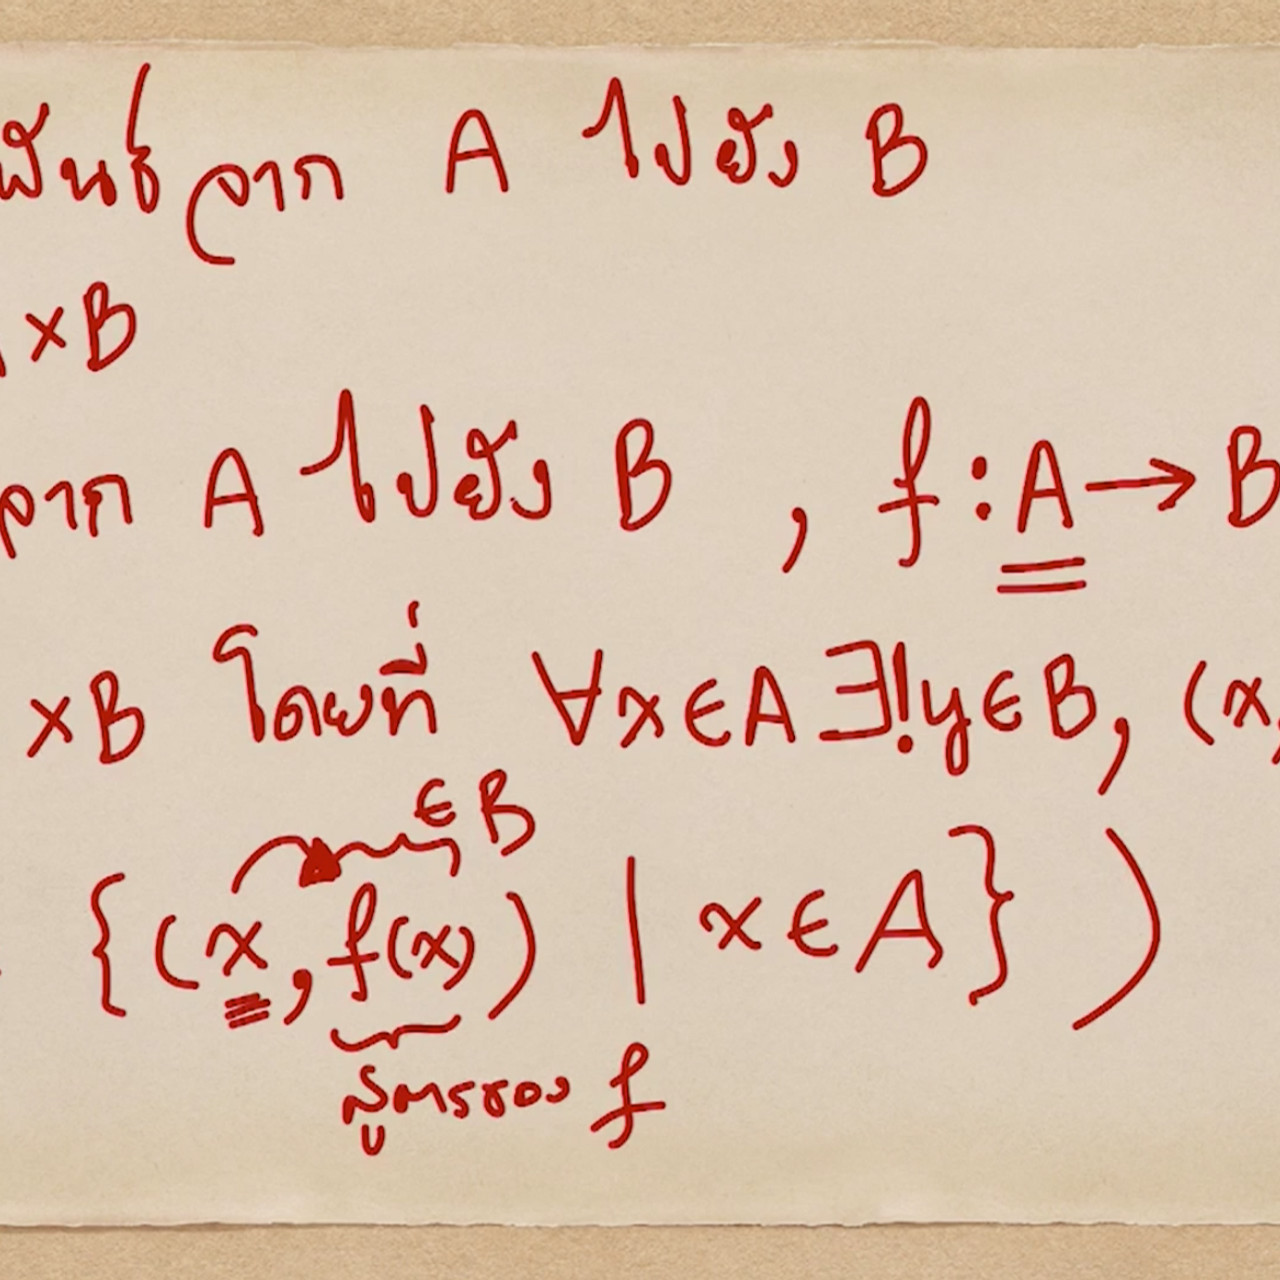 พันธ์จาก A ไปยัง B
×B
จาก A ไปยัง B , f : A → B
×B โดยที่ ∀x∈A ∃!y∈B, (x,
∈B
{(x, f(x)) | x∈A} )
สูตรของ f